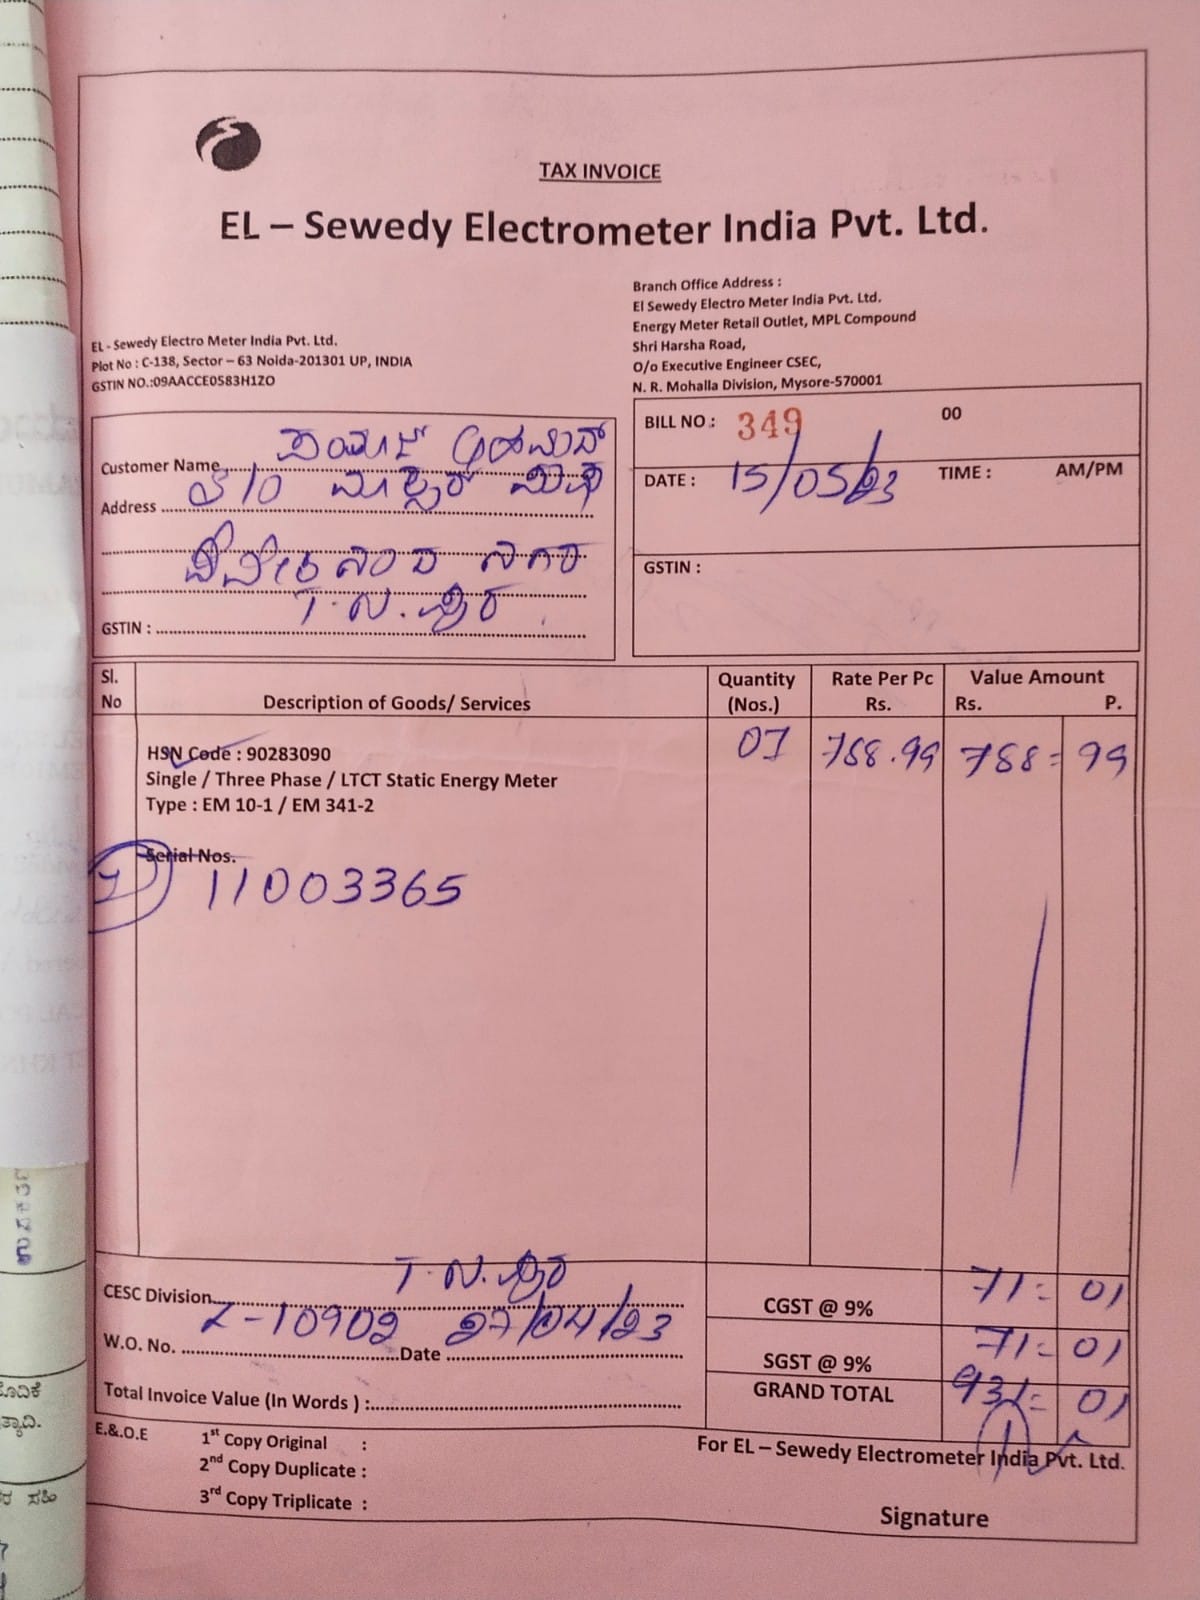 TAX INVOICE
EL – Sewedy Electrometer India Pvt. Ltd.
EL - Sewedy Electro Meter India Pvt. Ltd.
Plot No : C-138, Sector – 63 Noida-201301 UP, INDIA
GSTIN NO.:09AACCE0583H1ZO
Branch Office Address :
El Sewedy Electro Meter India Pvt. Ltd.
Energy Meter Retail Outlet, MPL Compound
Shri Harsha Road,
O/o Executive Engineer CSEC,
N. R. Mohalla Division, Mysore-570001
Customer Name
Address S/O
ವಿವೇಕಾನಂದ ನಗರ
GSTIN : T. ನ. ಪುರ
BILL NO : 349 00
DATE : 15/05/23 TIME : AM/PM
GSTIN :
Sl. No Description of Goods/ Services Quantity (Nos.) Rate Per Pc Rs. Value Amount Rs. P.
HSN Code : 90283090 01 788.99 788= 99
Single / Three Phase / LTCT Static Energy Meter
Type : EM 10-1 / EM 341-2
Serial Nos.
1 11003365
CESC Division T. ನ. ಪುರ
W.O. No. L-10902 Date 27/04/23
Total Invoice Value (In Words ) :
CGST @ 9% 71= 01
SGST @ 9% 71= 01
GRAND TOTAL 931= 01
E.&.O.E
1st Copy Original :
2nd Copy Duplicate :
3rd Copy Triplicate :
For EL – Sewedy Electrometer India Pvt. Ltd.
Signature